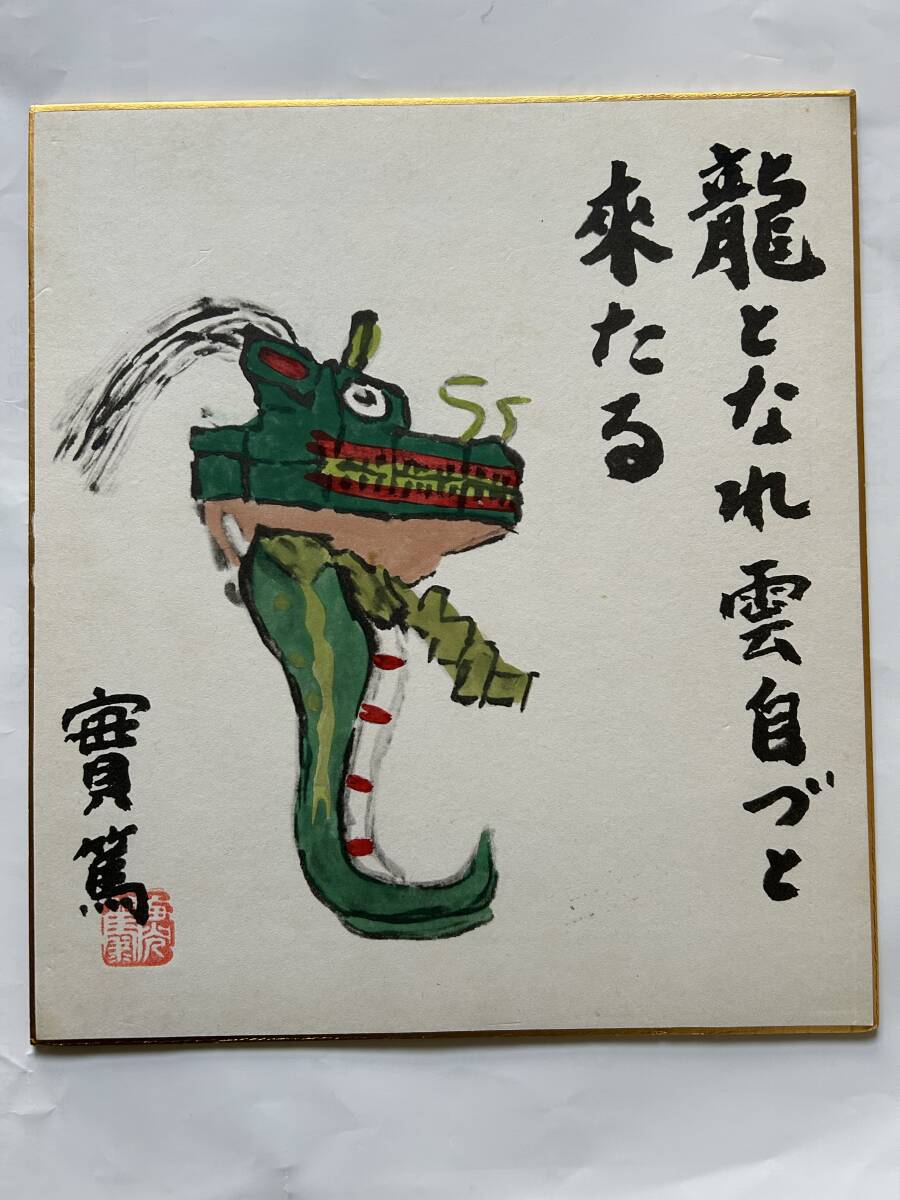 龍となれ雲自づと
來たる
實篤